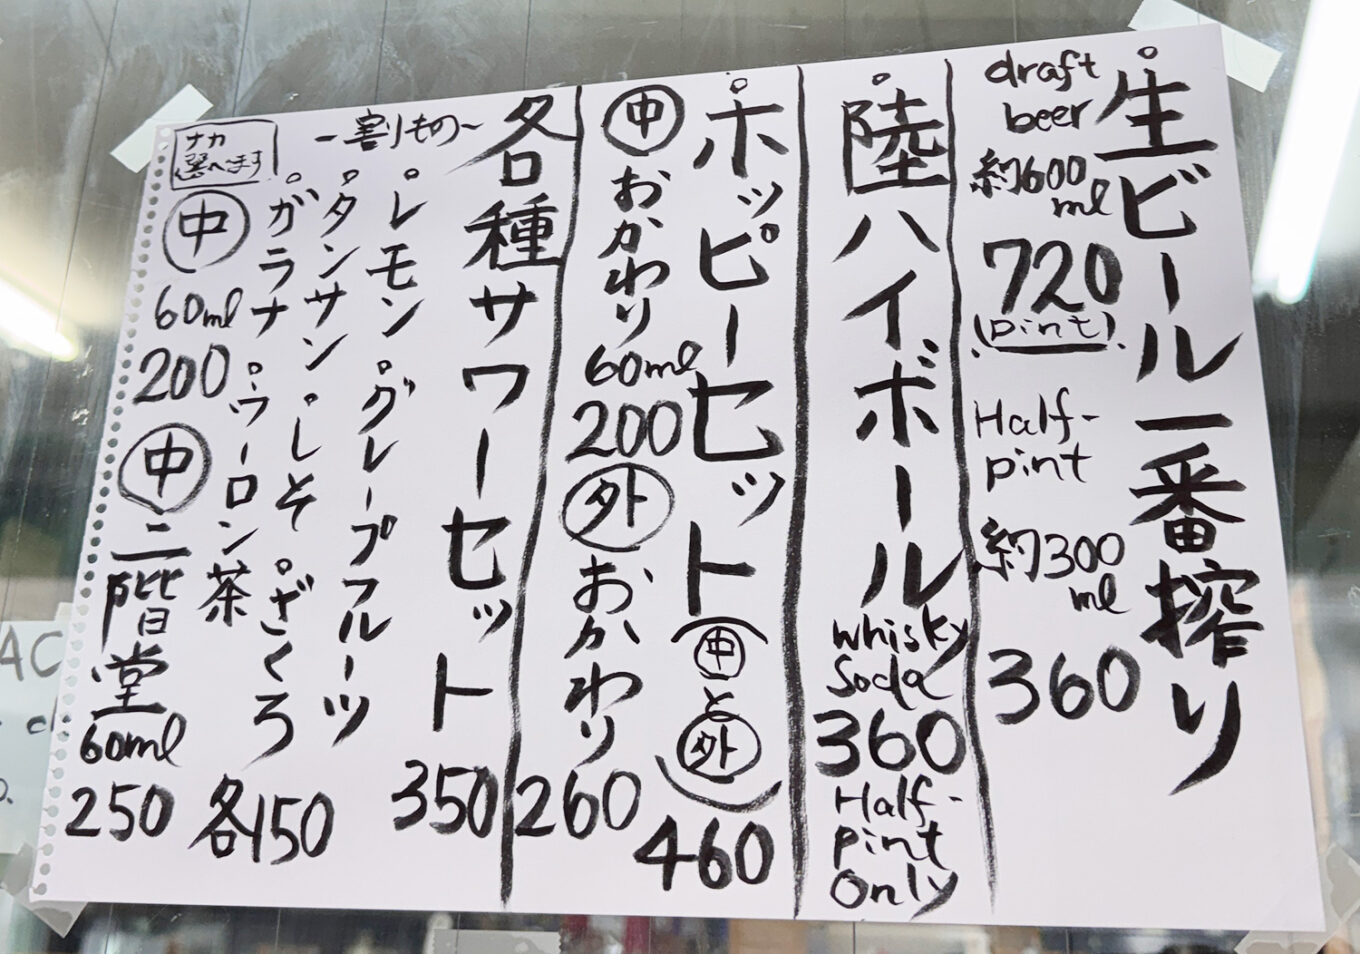 生ビール一番搾り
draft
beer
約600
ml
720
(pint)
Half-
pint
約300
ml
360
陸ハイボール
whisky
Soda
360
Half-
pint
Only
ホッピーセット(中と外)
460
中おかわり
60ml
200
外おかわり
260
各種サワーセット
350
-割りもの-
・レモン・グレープフルーツ
・タンサン・しそ・ざくろ
・ガラナ・ウーロン茶
各150
ナカ
選べます
中
60ml
200
中二階堂
60ml
250
AC